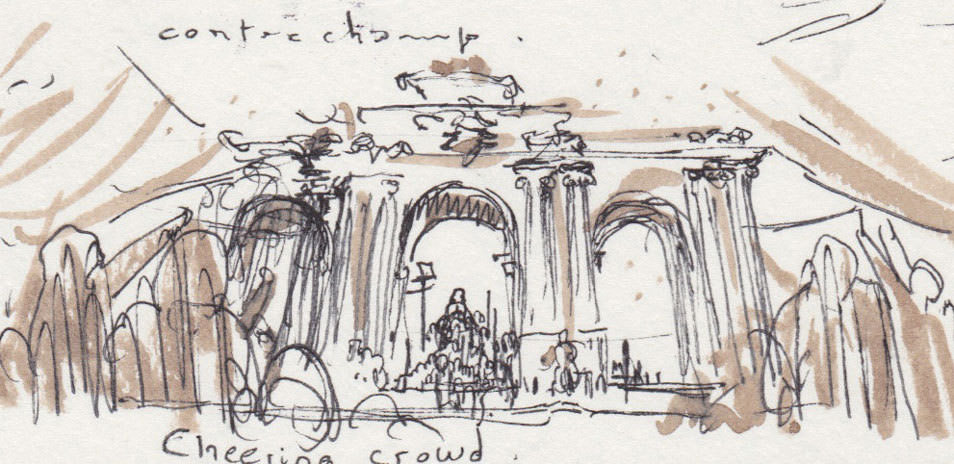 contrechamp.
Cheering crowd.